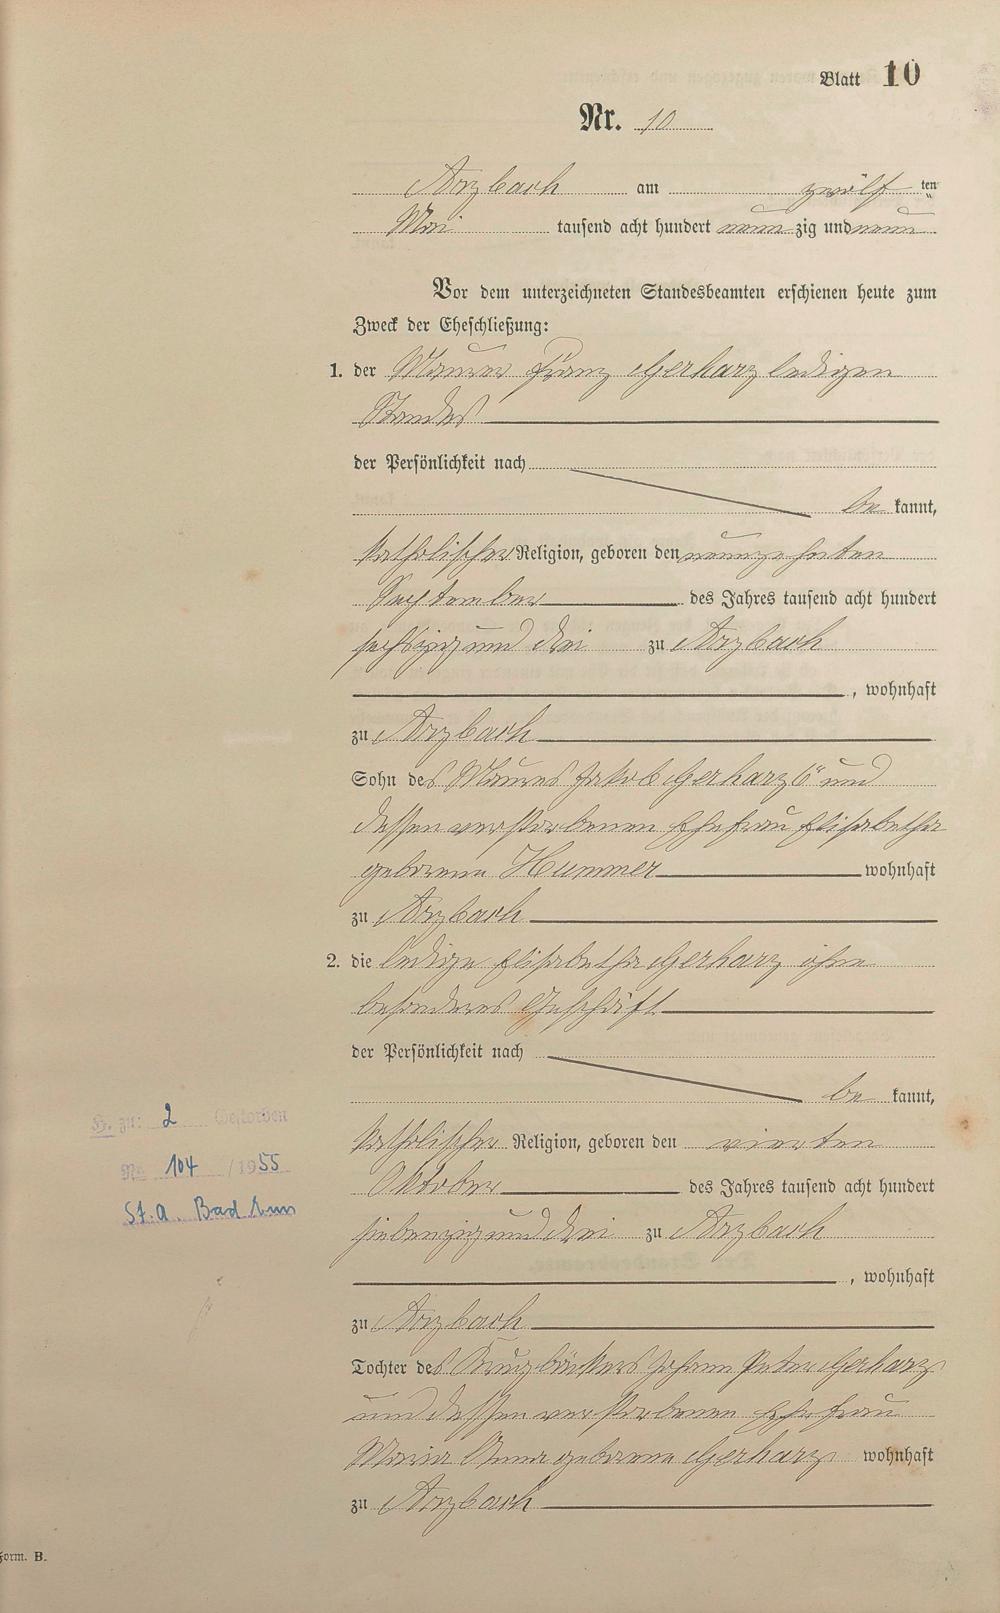 Blatt 10
Nr. 10
Arzbach am zwölf ten
Mai tausend acht hundert neun zig und neun
Vor dem unterzeichneten Standesbeamten erschienen heute zum
Zweck der Eheschließung:
1. der Maurer Franz Gerharz ledigen
Standes
der Persönlichkeit nach
be kannt,
katholischer Religion, geboren den neunzehnten
September des Jahres tausend acht hundert
sechszig und drei zu Arzbach
, wohnhaft
zu Arzbach
Sohn des Maurers Jakob Gerharz 6ten und
dessen verstorbenen Ehefrau Elisabetha
geborene Hummer wohnhaft
zu Arzbach
2. die ledige Elisabetha Gerharz ohne
besonderes Geschäft
der Persönlichkeit nach
be kannt,
H. zu: 2 Gestorben
katholischer Religion, geboren den vierten
No 104 /1955
Oktober des Jahres tausend acht hundert
St. A. Bad Ems
siebenzig und drei zu Arzbach
, wohnhaft
zu Arzbach
Tochter des Krugbäckers Johann Peter Gerharz
und dessen verstorbenen Ehefrau
Maria Anna geborene Gerharz wohnhaft
zu Arzbach
Form. B.